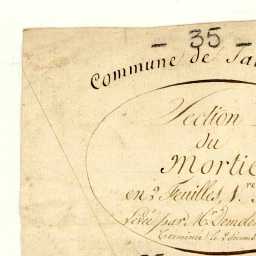 - 35 -
Commune de
Section
du
Mortie
en 2 Feuilles, 1.re
Levée par Mr
Terminée le